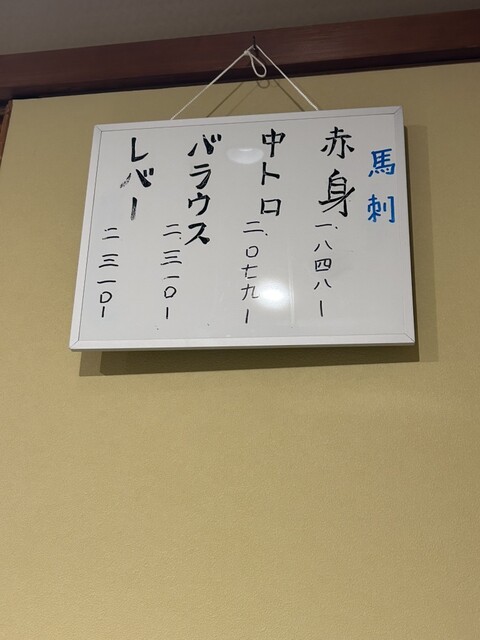 馬刺
赤身 一、八四八ー
中トロ 二、〇七九ー
バラウス 二、三一〇ー
レバー 二三一〇ー